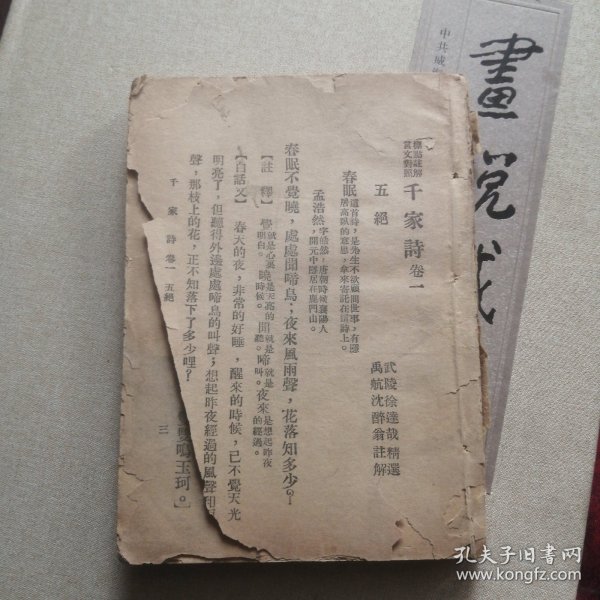 標點註解
言文對照
千家詩卷一
武陵徐達哉精選
禹航沈醉翁註解
五絕
春眠
這首詩，是先生不欲預問世事，有隱
居高臥的意思，拿來寄託在這詩上。
孟浩然，
字浩然，唐朝時候襄陽人
，開元中隱居在鹿門山。
春眠不覺曉，處處聞啼鳥；夜來風雨聲，花落知多少？
【註釋】
覺 就是心裏明白。
曉 是天亮的時候。
聞 就是聽。
啼 就是叫。
夜來 是想起昨夜的經過。
【白話文】 春天的夜，非常的好睡，醒來的時候，已不覺天光
明亮了，但聽得外邊處處啼鳥的叫聲；想起昨夜經過的風聲和雨
聲，那枝上的花，正不知落下了多少哩？
千家詩 卷一 五絕
三
雙鳴玉珂。】
畫說
中共威
孔夫子旧书网
www.kongfz.com